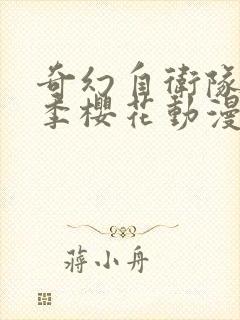 奇幻自衛隊
季櫻花動漫
蔣小舟